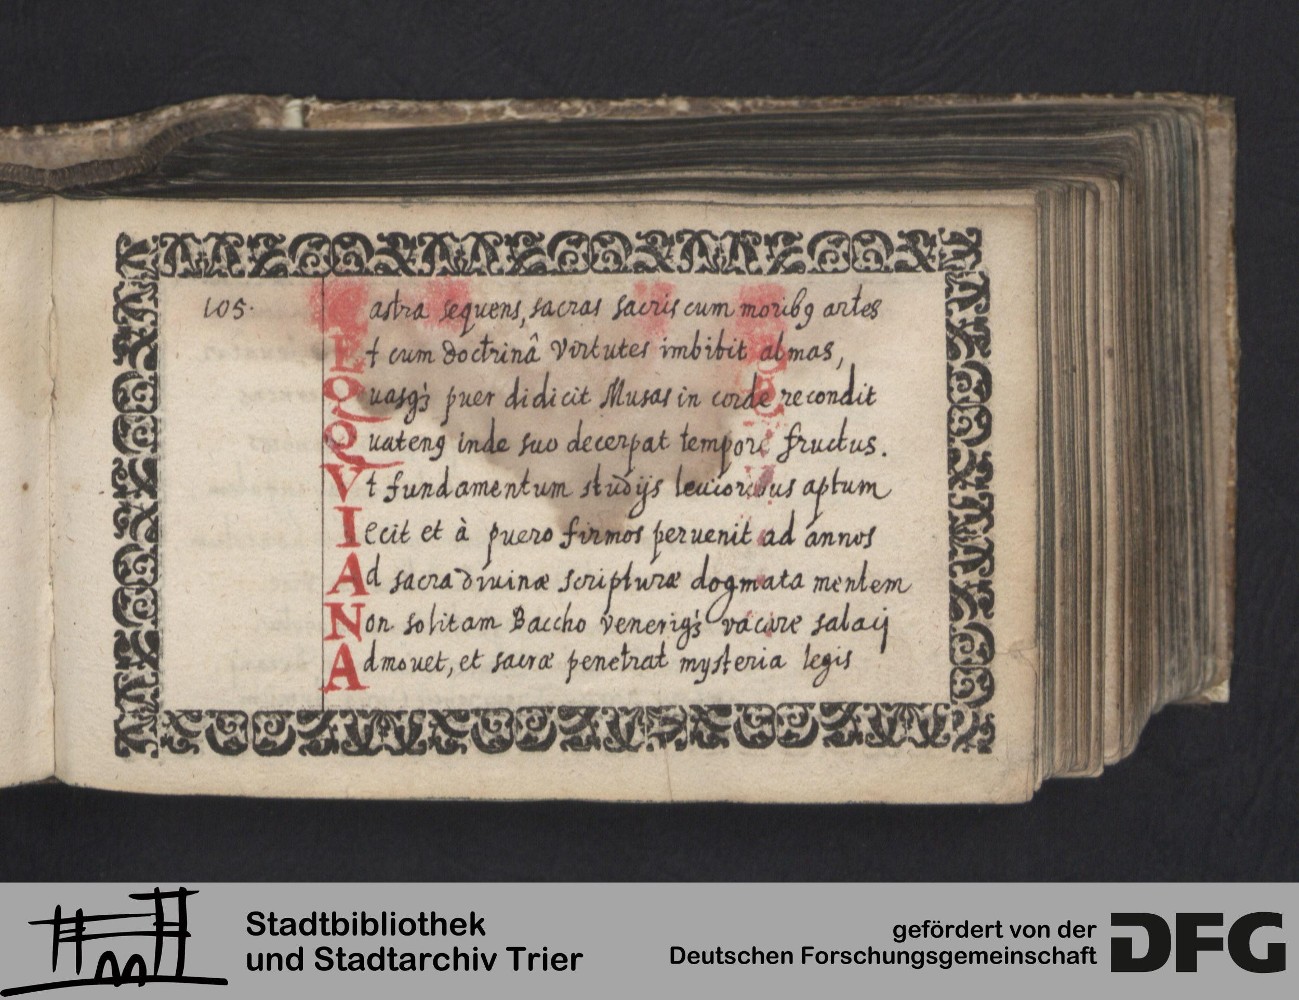 105. astra sequens, sacras sacris cum moribꝰ artes
Et cum doctrinâ virtutes imbibit almas,
Quasq́ꝫ puer didicit Musas in corde recondit
Quatenꝰ inde suo decerpat tempore fructus.
Vt fundamentum studijs leuioribus aptum
Iecit et à puero firmos peruenit ad annos
Ad sacra diuinæ scripturæ dogmata mentem
Non solitam Baccho venerisq́ꝫ vacare salaci
Admouet, et sacræ penetrat mysteria legis
Stadtbibliothek
und Stadtarchiv Trier
gefördert von der
Deutschen Forschungsgemeinschaft
DFG